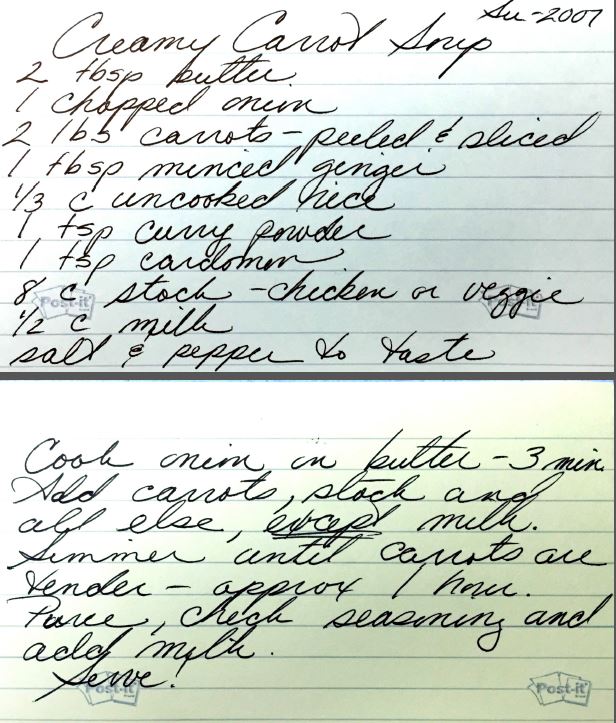 Su-2007
Creamy Carrot Soup
2 tbsp butter
1 chopped onion
2 lbs carrots - peeled & sliced
1 tbsp minced ginger
1/3 c uncooked rice
1 tsp curry powder
1 tsp cardomon
8 c stock - chicken or veggie
Post-it Post-it
1/2 c milk
salt & pepper to taste
Cook onion in butter - 3 min.
Add carrots, stock and
all else, except milk.
Simmer until carrots are
tender - approx 1 hour.
Puree, check seasoning and
add milk.
Serve!
Post-it Post-it